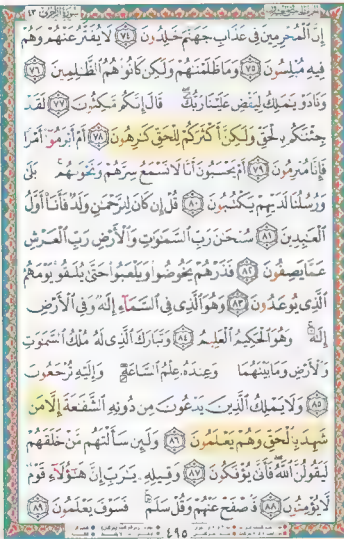 سورة الزخرف ٤٣
إِنَّ ٱلْمُجْرِمِينَ فِى عَذَابِ جَهَنَّمَ خَٰلِدُونَ ٧٤ لَا يُفَتَّرُ عَنْهُمْ وَهُمْ
فِيهِ مُبْلِسُونَ ٧٥ وَمَا ظَلَمْنَٰهُمْ وَلَٰكِن كَانُوا۟ هُمُ ٱلظَّٰلِمِينَ ٧٦
وَنَادَوْا۟ يَٰمَٰلِكُ لِيَقْضِ عَلَيْنَا رَبُّكَ قَالَ إِنَّكُم مَّٰكِثُونَ ٧٧ لَقَدْ
جِئْنَٰكُم بِٱلْحَقِّ وَلَٰكِنَّ أَكْثَرَكُمْ لِلْحَقِّ كَٰرِهُونَ ٧٨ أَمْ أَبْرَمُوٓا۟ أَمْرًا
فَإِنَّا مُبْرِمُونَ ٧٩ أَمْ يَحْسَبُونَ أَنَّا لَا نَسْمَعُ سِرَّهُمْ وَنَجْوَىٰهُم بَلَىٰ
وَرُسُلُنَا لَدَيْهِمْ يَكْتُبُونَ ٨٠ قُلْ إِن كَانَ لِلرَّحْمَٰنِ وَلَدٌ فَأَنَا۠ أَوَّلُ
ٱلْعَٰبِدِينَ ٨١ سُبْحَٰنَ رَبِّ ٱلسَّمَٰوَٰتِ وَٱلْأَرْضِ رَبِّ ٱلْعَرْشِ
عَمَّا يَصِفُونَ ٨٢ فَذَرْهُمْ يَخُوضُوا۟ وَيَلْعَبُوا۟ حَتَّىٰ يُلَٰقُوا۟ يَوْمَهُمُ
ٱلَّذِى يُوعَدُونَ ٨٣ وَهُوَ ٱلَّذِى فِى ٱلسَّمَآءِ إِلَٰهٌ وَفِى ٱلْأَرْضِ
إِلَٰهٌ وَهُوَ ٱلْحَكِيمُ ٱلْعَلِيمُ ٨٤ وَتَبَارَكَ ٱلَّذِى لَهُۥ مُلْكُ ٱلسَّمَٰوَٰتِ
وَٱلْأَرْضِ وَمَا بَيْنَهُمَا وَعِندَهُۥ عِلْمُ ٱلسَّاعَةِ وَإِلَيْهِ تُرْجَعُونَ
٨٥ وَلَا يَمْلِكُ ٱلَّذِينَ يَدْعُونَ مِن دُونِهِ ٱلشَّفَٰعَةَ إِلَّا مَن
شَهِدَ بِٱلْحَقِّ وَهُمْ يَعْلَمُونَ ٨٦ وَلَئِن سَأَلْتَهُم مَّنْ خَلَقَهُمْ
لَيَقُولُنَّ ٱللَّهُ فَأَنَّىٰ يُؤْفَكُونَ ٨٧ وَقِيلِهِۦ يَٰرَبِّ إِنَّ هَٰٓؤُلَآءِ قَوْمٌ
لَّا يُؤْمِنُونَ ٨٨ فَٱصْفَحْ عَنْهُمْ وَقُلْ سَلَٰمٌ فَسَوْفَ يَعْلَمُونَ ٨٩
٤٩٥